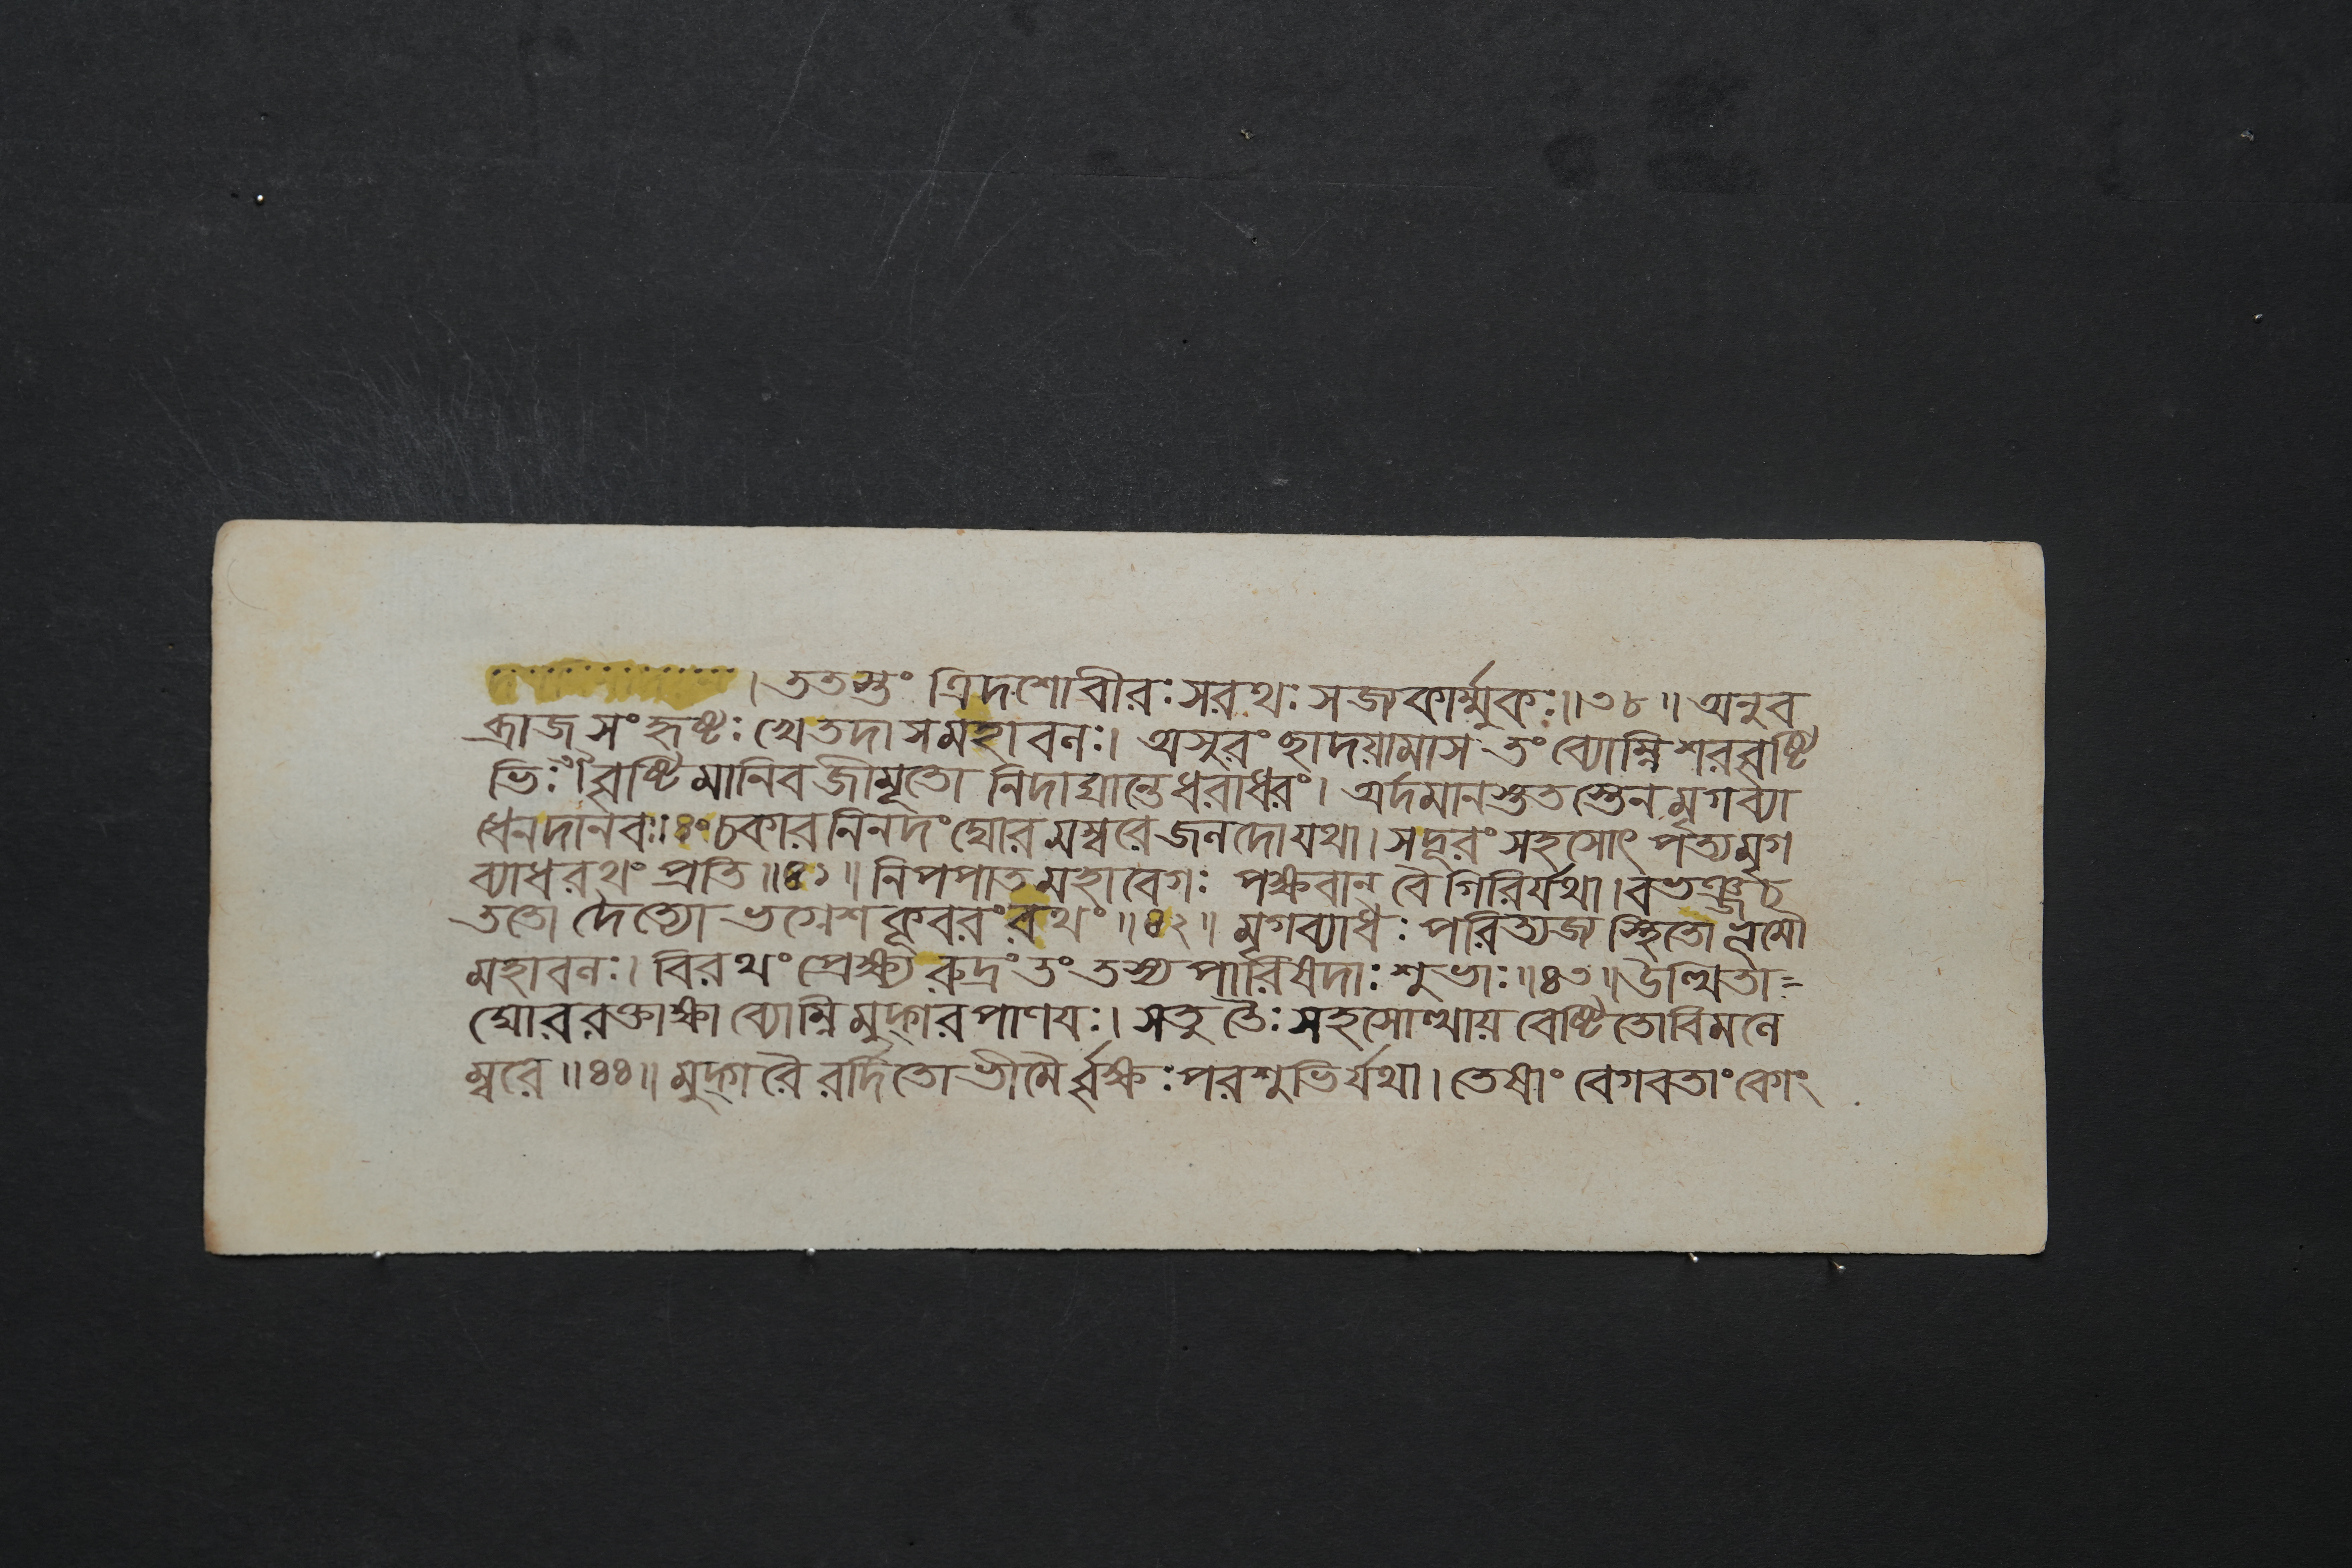 । ততস্তং ত্রিদশোবীরঃ সরথঃ সজ্যকার্ম্মুকঃ॥৩৮॥ অনুব
ব্রাজ সংহৃষ্টঃ খেতদা সমহাবলঃ। অসুরং ছাদয়ামাস তং ব্যোম্নি শরবৃষ্টি
ভিঃ বৃষ্টিমানিব জীমূতো নিদাঘান্তে ধরাধরং। অর্দমানস্তু তস্তেন মৃগব্যা
ধেন দানবঃ॥৪০ চকার নিনদং ঘোরমম্বরে জলদো যথা। সদূরং সহসোৎপত্য মৃগ
ব্যাধ রথং প্রতি॥৪১॥ নিপপাত মহাবেগঃ পক্ষবান বৈ গিরির্যথা। বভঞ্জ চ
ততো দৈত্যো ভগ্নেশ কূবরং রথং॥৪২॥ মৃগব্যাধঃ পরিত্যজ্য স্থিতো ভূমৌ
মহাবলঃ। বিরথং প্রেক্ষ্য রুদ্রং তং তস্য পারিষদাঃ শুভাঃ॥৪৩॥ উত্থিতা=
ঘোররক্তাক্ষা ব্যোম্নি মুদ্গরপাণয়ঃ। স তু তৈঃ সহসোত্থায় বেষ্টিতো বিমলে
ম্বরে॥৪৪॥ মুদ্গরৈরর্দিতো ভীমৈর্বৃক্ষঃ পরশুভির্যথা। তেষাং বেগবতাং